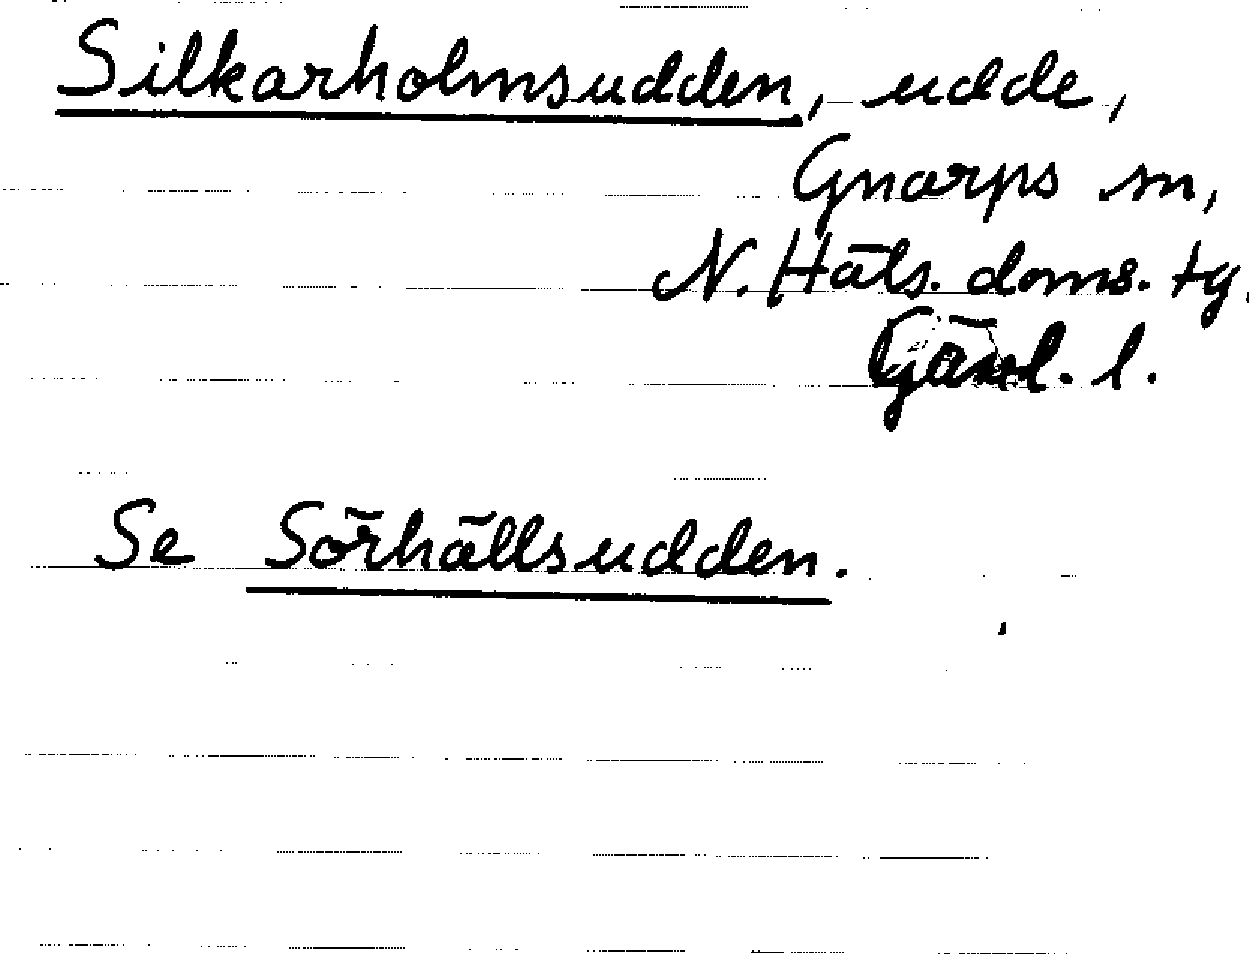 Silkarholmsudden, udde,
Gnarps sn,
N. Häls. doms. tg,
Gävl. l.
Se Sörhällsudden.